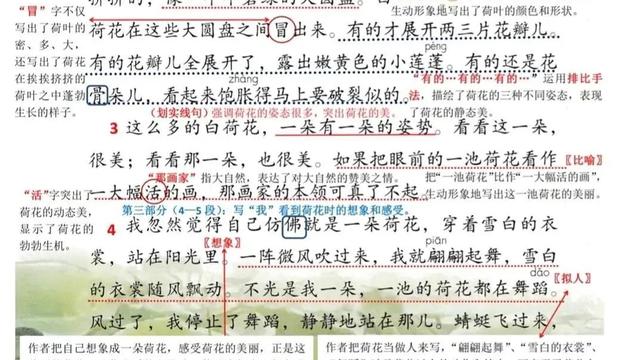 挤挤的，像一个个碧绿的大圆盘。白
"冒"字不仅
写出了荷叶的
密、多、大，
还写出了荷花
在挨挨挤挤的
荷叶之中蓬勃
生长的样子。
生动形象地写出了荷叶的颜色和形状。
荷花在这些大圆盘之间冒出来。有的才展开两三片花瓣儿。
péng
有的花瓣儿全展开了，露出嫩黄色的小莲蓬。有的还是花
zhāng
骨朵儿，看起来饱胀得马上要破裂似的。
"有的…有的…有的…"运用排比手
法，描绘了荷花的三种不同姿态，表现
了荷花的静态美。
（划实线句）强调荷花的姿态很多，突出荷花的美。
3 这么多的白荷花，一朵有一朵的姿势。看看这一朵，
很美；看看那一朵，也很美。如果把眼前的一池荷花看作
〖比喻〗
"那画家"指大自然，表达了对大自然的赞美之情。
把"一池荷花"比作"一大幅活的画"，
生动形象地写出了这一池荷花的美丽。
一大幅活的画，那画家的本领可真了不起。
"活"字突出了
荷花的动态美，
显示了荷花的
勃勃生机。
第三部分（4—5段）：写"我"看到荷花时的想象和感受。
4 我忽然觉得自己仿佛就是一朵荷花，穿着雪白的衣
〖想象〗
piān
裳，站在阳光里。一阵微风吹过来，我就翩翩起舞，雪白
dǎo
的衣裳随风飘动。不光是我一朵，一池的荷花都在舞蹈。
〖拟人〗
风过了，我停止了舞蹈，静静地站在那儿。蜻蜓飞过来，
作者把自己想象成一朵荷花，感受荷花的美丽，正是这
作者把荷花当做人来写，"翩翩起舞"、"雪白的衣裳"、